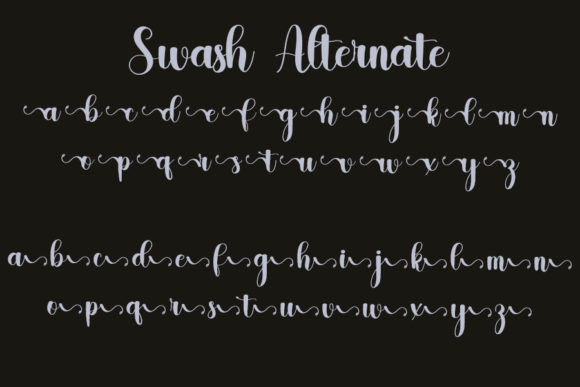 Swash Alternate
a b c d e f g h i j k l m n
o p q r s t u v w x y z
a b c d e f g h i j k l m n
o p q r s t u v w x y z